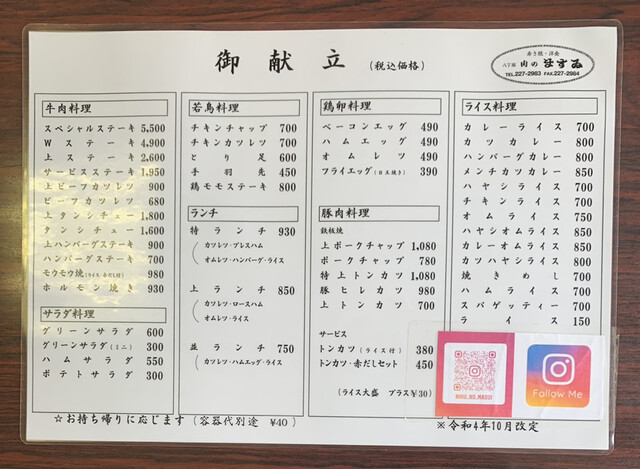 御献立 (税込価格)
寿き焼・洋食
八丁堀 肉のますゐ
TEL.227-2983 FAX.227-2984
牛肉料理
スペシャルステーキ 5,500
Wステーキ 4,900
上ステーキ 2,600
サービスステーキ 1,950
上ビーフカツレツ 900
ビーフカツレツ 680
上タンシチュー 1,800
タンシチュー 1,600
上ハンバーグステーキ 900
ハンバーグステーキ 700
モウモウ焼(ライス 赤だし付) 980
ホルモン焼き 930
サラダ料理
グリーンサラダ 600
グリーンサラダ(ミニ) 300
ハムサラダ 550
ポテトサラダ 300
若鳥料理
チキンチャップ 700
チキンカツレツ 700
とり足 600
手羽先 450
鶏モモステーキ 800
ランチ
特ランチ 930
カツレツ・プレスハム
オムレツ・ハンバーグ・ライス
上ランチ 850
カツレツ・ロースハム
オムレツ・ライス
並ランチ 750
カツレツ・ハムエッグ・ライス
鶏卵料理
ベーコンエッグ 490
ハムエッグ 490
オムレツ 490
フライエッグ(目玉焼き) 390
豚肉料理
鉄板焼
上ポークチャップ 1,080
ポークチャップ 780
特上トンカツ 1,080
豚ヒレカツ 980
上トンカツ 700
サービス
トンカツ(ライス付) 380
トンカツ・赤だしセット 450
(ライス大盛 プラス¥30)
ライス料理
カレーライス 700
カツカレー 800
ハンバーグカレー 800
メンチカツカレー 850
ハヤシライス 700
チキンライス 700
オムライス 750
ハヤシオムライス 850
カレーオムライス 850
カツハヤシライス 800
焼きめし 700
ハムライス 700
スパゲッティー 700
ライス 150
NIKU_NO_MASUI
Follow Me
☆お持ち帰りに応じます(容器代別途 ¥40)
※令和4年10月改定